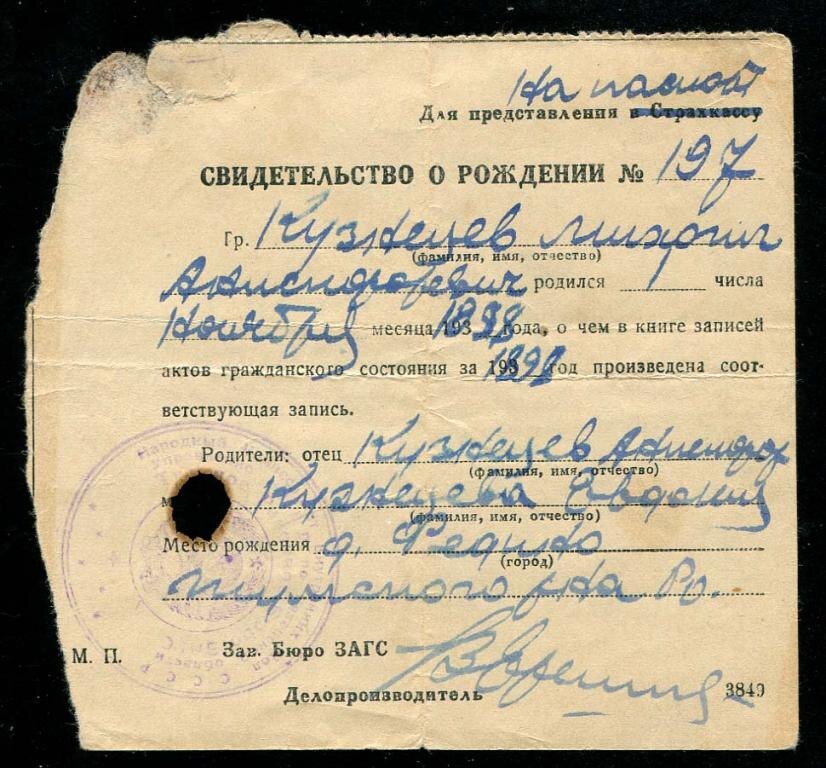 На паспорт
Для представления в Страхкассу
СВИДЕТЕЛЬСТВО О РОЖДЕНИИ № 197
Гр. Кузнецев Михаил
(фамилия, имя, отчество)
Анисифорович родился 1 числа
Ноября месяца 193 1898 года, о чем в книге записей
актов гражданского состояния за 193 1898 год произведена соот-
ветствующая запись.
Родители: отец Кузнецев Анисифор
(фамилия, имя, отчество)
Кузнецева Евдокия
(фамилия, имя, отчество)
Место рождения д.
(город)
р-на
М. П.
Зав. Бюро ЗАГС
Делопроизводитель
3849
Народный
СССР
области
ЗАГС